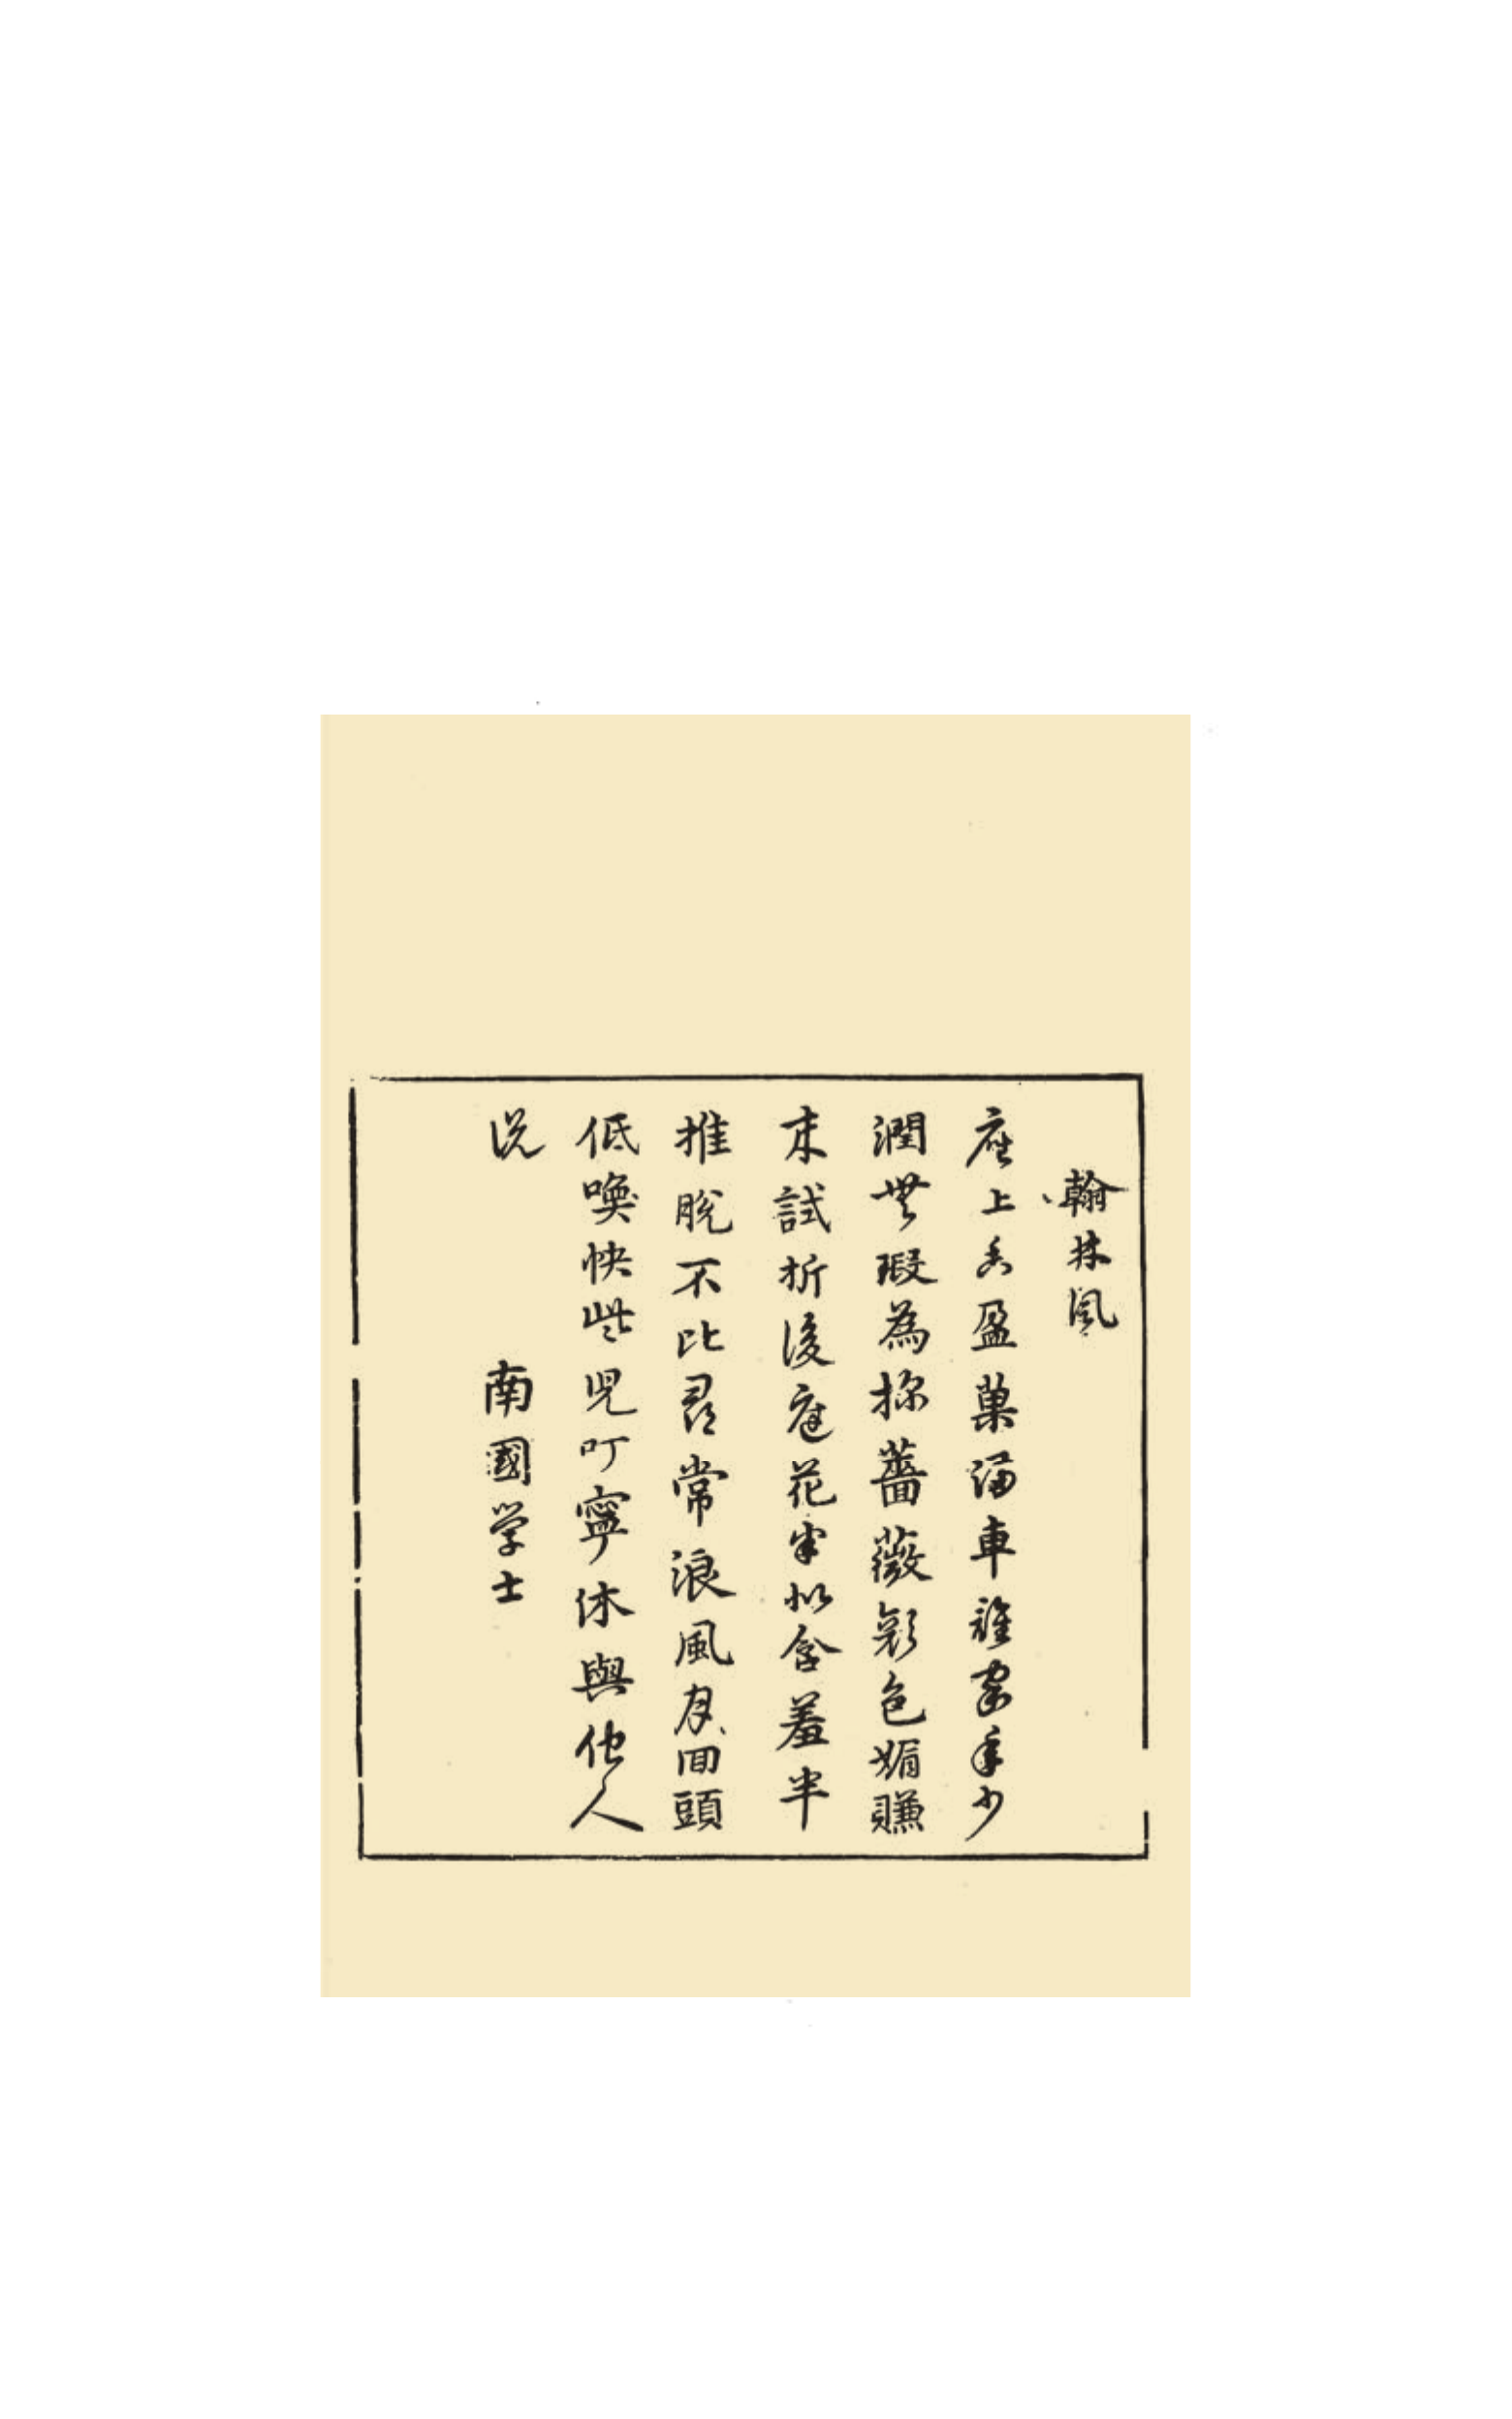 翰林風
座上香盈菓滿車誰家年少
潤無瑕為探薔薇顏色媚賺
來試折後庭花半似含羞半
推脫不比尋常浪風月回頭
低喚快些兒叮寧休與他人
說
南國学士